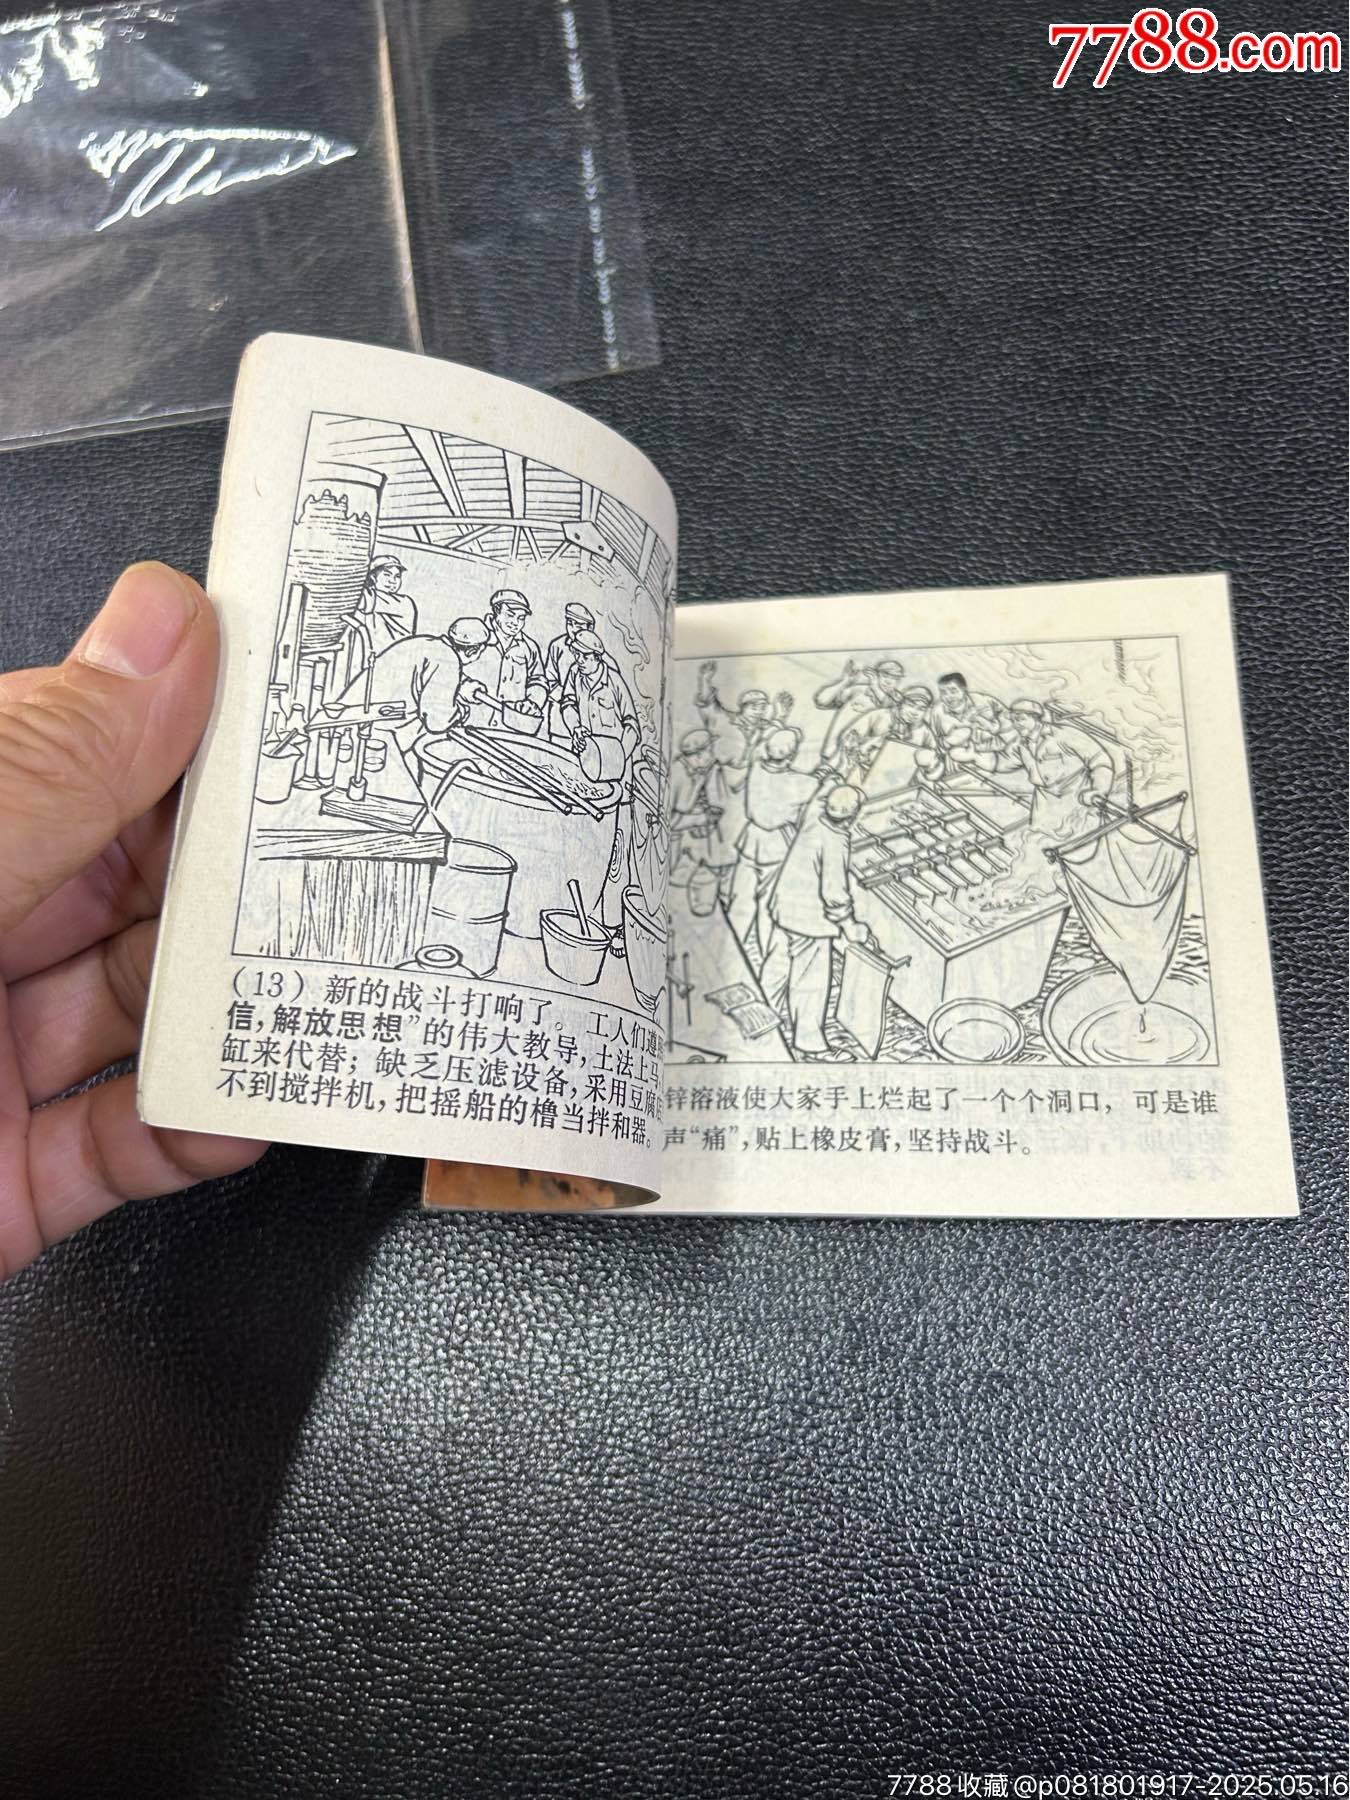 7788.com
(13) 新的战斗打响了。工人们遵
信,解放思想”的伟大教导,土法上马,
缸来代替;缺乏压滤设备,采用豆腐
不到搅拌机,把摇船的橹当拌和器。
锌溶液使大家手上烂起了一个个洞口,可是谁
声“痛”,贴上橡皮膏,坚持战斗。
7788收藏@p081801917-2025.05.16